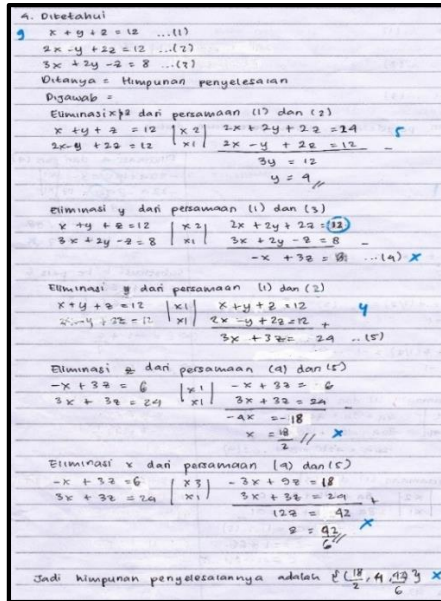 4. Diketahui
9 x + y + z = 12 ...(1)
2x - y + 2z = 12 ...(2)
3x + 2y - z = 8 ...(3)
Ditanya = Himpunan penyelesaian
Dijawab =
Eliminasi x dari persamaan (1) dan (2)
x + y + z = 12 | x2 | 2x + 2y + 2z = 24 5
2x - y + 2z = 12 | x1 | 2x - y + 2z = 12 -
3y = 12
y = 4 //
Eliminasi y dari persamaan (1) dan (3)
x + y + z = 12 | x2 | 2x + 2y + 2z =
3x + 2y - z = 8 | x1 | 3x + 2y - z = 8 -
-x + 3z = ...(4) x
Eliminasi y dari persamaan (1) dan (2)
x + y + z = 12 | x1 | x + y + z = 12 4
2x - y + 2z = 12 | x1 | 2x - y + 2z = 12 +
3x + 3z = 24 ...(5)
Eliminasi z dari persamaan (4) dan (5)
-x + 3z = 6 | x1 | -x + 3z = 6
3x + 3z = 24 | x1 | 3x + 3z = 24 -
-4x = -18
x = 18/2 // x
Eliminasi x dari persamaan (4) dan (5)
-x + 3z = 6 | x3 | -3x + 9z = 18
3x + 3z = 24 | x1 | 3x + 3z = 24 +
12z = 42
z = 42/6 // x
Jadi himpunan penyelesaiannya adalah {(18/2, 4, 42/6)} x